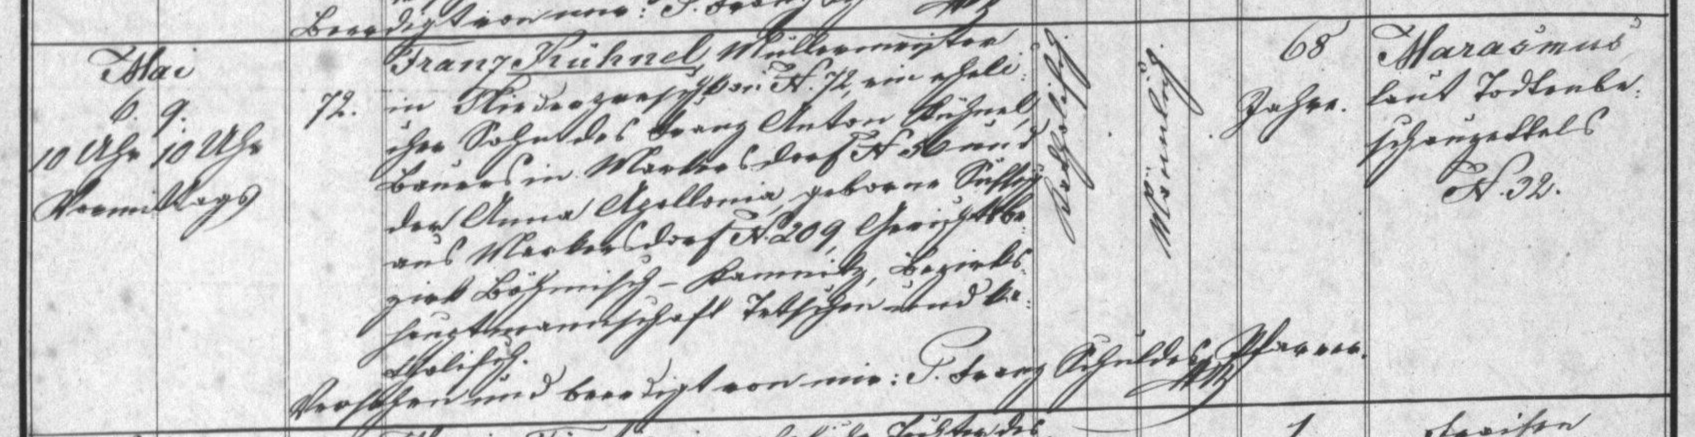 Beerdigt von mir: P. Franz
Mai
6. 9.
10 Uhr 10 Uhr
Vormittags
72.
Franz Kühnel, Müllermeister
in Niederpreschkai N. 72, ein eheli-
cher Sohn des Franz Anton Kühnel,
Bauers in Markersdorf N 56 und
der Anna Apollonia, geborne
aus Markersdorf N. 209, Gerichtsbe-
zirk Böhmisch-Kamnitz, Bezirks-
hauptmannschaft Tetschen und ka-
tholisch.
Versehen und beerdigt von mir: P. Franz Schuldes, Pfarrer.
Katholisch
Männlich
68
Jahre.
Marasmus
laut Todtenbe-
schauzettels
N. 32.
Tochter des
1